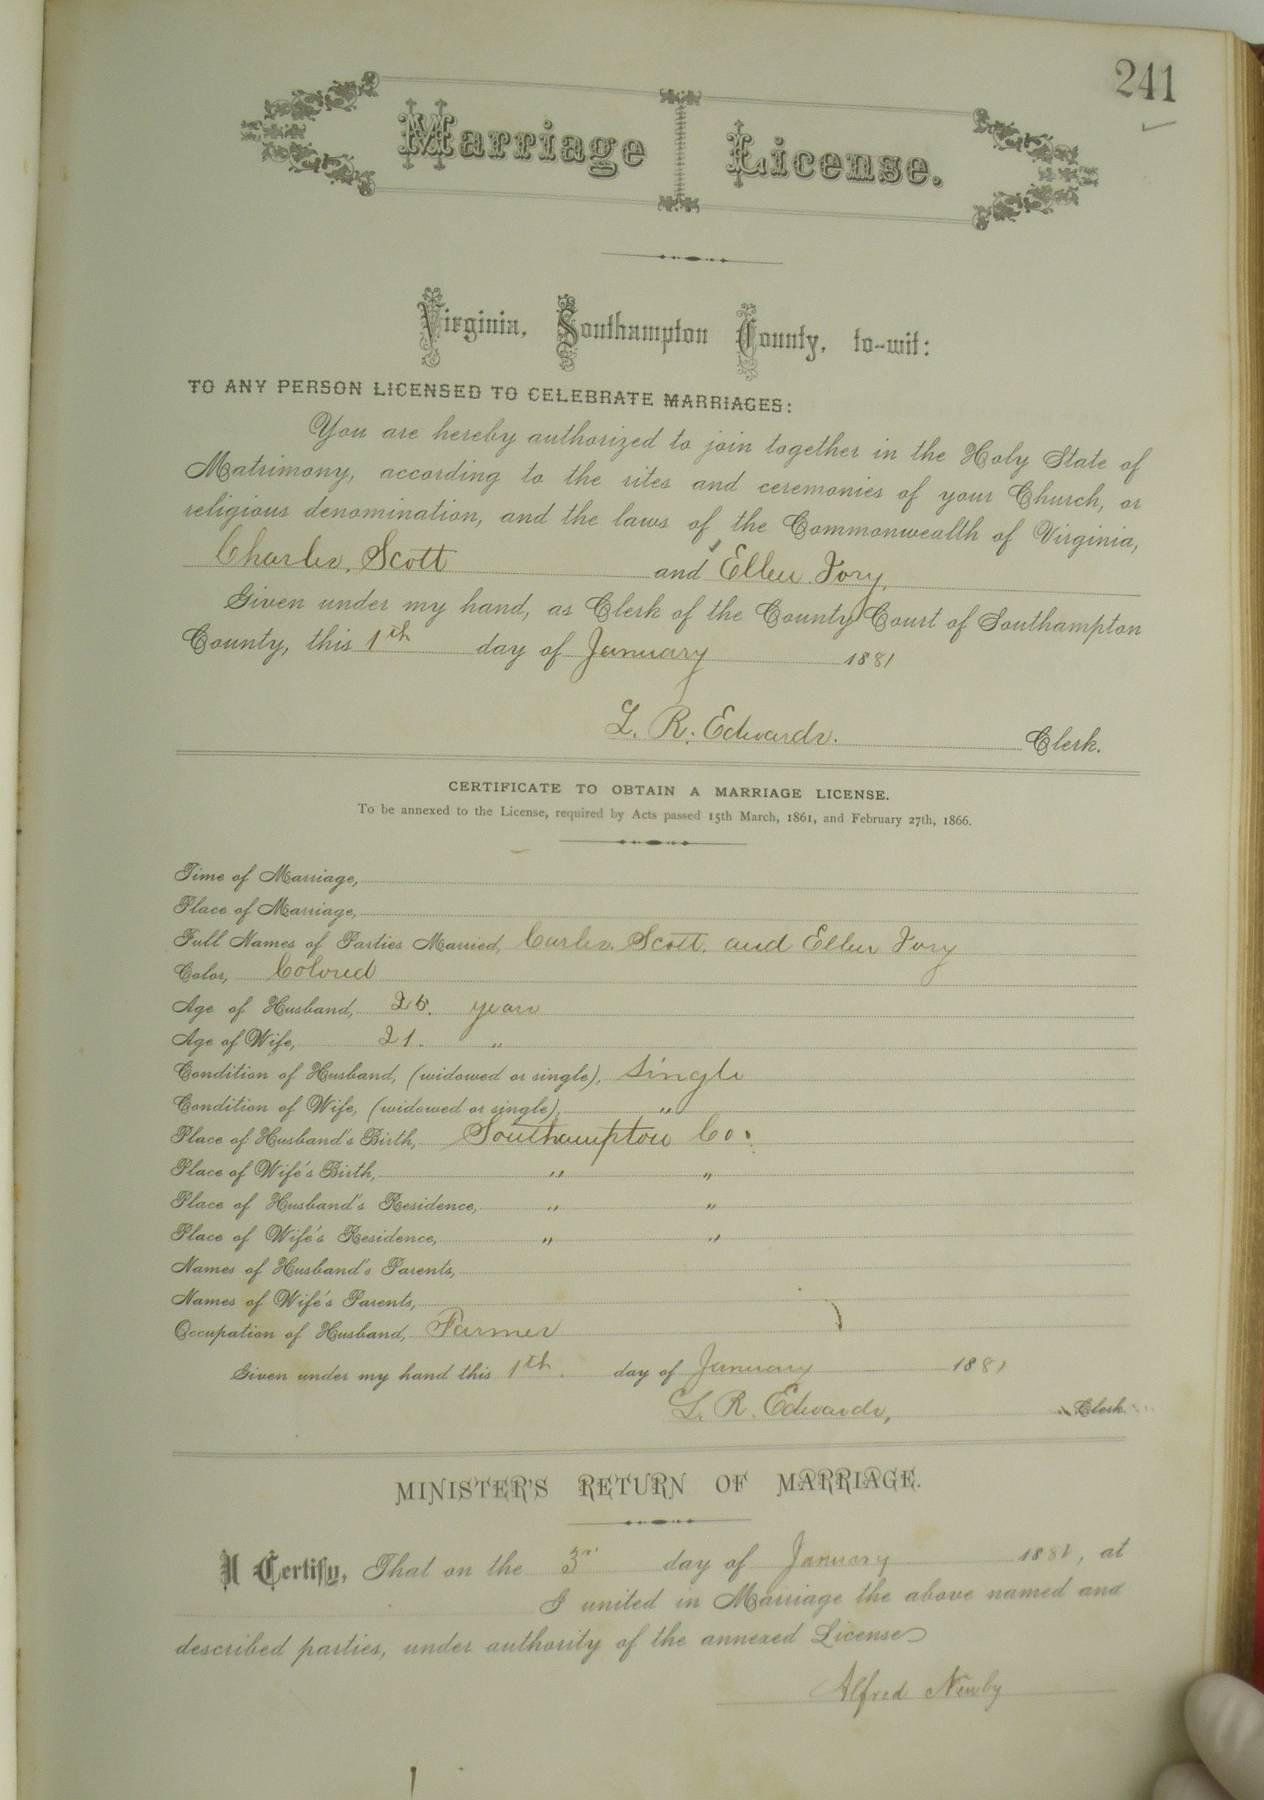 241
Marriage License.
Virginia, Southampton County, to-wit:
TO ANY PERSON LICENSED TO CELEBRATE MARRIAGES:
You are hereby authorized to join together in the Holy State of
Matrimony, according to the rites and ceremonies of your Church, or
religious denomination, and the laws of the Commonwealth of Virginia,
Charles. Scott and Ellen
Given under my hand, as Clerk of the County Court of Southampton
County, this 1th day of January 1881
L. R. Edwards. Clerk.
CERTIFICATE TO OBTAIN A MARRIAGE LICENSE.
To be annexed to the License, required by Acts passed 15th March, 1861, and February 27th, 1866.
Time of Marriage,
Place of Marriage,
Full Names of Parties Married, Scott. and Ellen
Color, Colored
Age of Husband, years
Age of Wife, 21. "
Condition of Husband, (widowed or single), Single
Condition of Wife, (widowed or single), "
Place of Husband's Birth, Southampton Co.
Place of Wife's Birth, " "
Place of Husband's Residence, " "
Place of Wife's Residence, " "
Names of Husband's Parents,
Names of Wife's Parents,
Occupation of Husband, Farmer
Given under my hand this 1th. day of January 1881
L. R. Edwards, Clerk.
MINISTER'S RETURN OF MARRIAGE.
I Certify, That on the 3rd day of January 1881, at
I united in Marriage the above named and
described parties, under authority of the annexed License
Alfred Newby